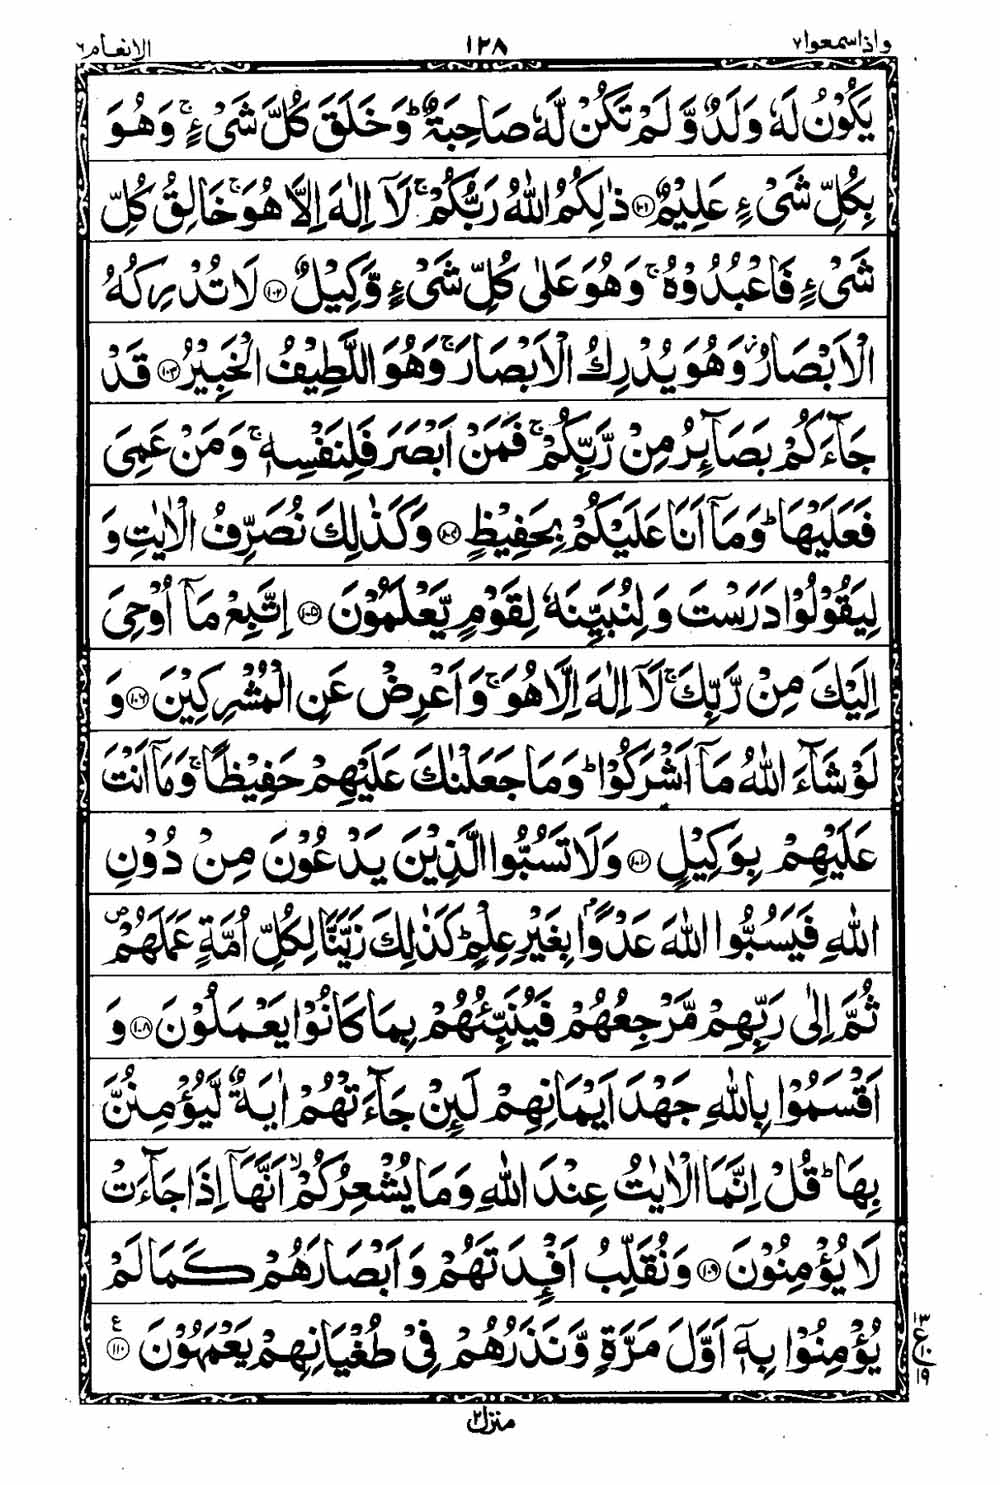 واذاسمعوا۷ ۱۲۸ الانعام ۶
يَكُوْنُ لَهٗ وَلَدٌ وَّ لَمْ تَكُنْ لَّهٗ صَاحِبَةٌ ؕ وَ خَلَقَ كُلَّ شَیْءٍ ۚ وَ هُوَ
بِكُلِّ شَیْءٍ عَلِيْمٌ ﴿۱۰۱﴾ ذٰلِكُمُ اللّٰهُ رَبُّكُمْ ۚ لَاۤ اِلٰهَ اِلَّا هُوَ ۚ خَالِقُ كُلِّ
شَیْءٍ فَاعْبُدُوْهُ ۚ وَ هُوَ عَلٰى كُلِّ شَیْءٍ وَّكِيْلٌ ﴿۱۰۲﴾ لَا تُدْرِكُهُ
الْاَبْصَارُ ؗ وَ هُوَ يُدْرِكُ الْاَبْصَارَ ۚ وَ هُوَ اللَّطِيْفُ الْخَبِيْرُ ﴿۱۰۳﴾ قَدْ
جَآءَكُمْ بَصَآئِرُ مِنْ رَّبِّكُمْ ۚ فَمَنْ اَبْصَرَ فَلِنَفْسِهٖ ۚ وَ مَنْ عَمِیَ
فَعَلَيْهَا ؕ وَ مَاۤ اَنَا عَلَيْكُمْ بِحَفِيْظٍ ﴿۱۰۴﴾ وَ كَذٰلِكَ نُصَرِّفُ الْاٰيٰتِ وَ
لِيَقُوْلُوْا دَرَسْتَ وَ لِنُبَيِّنَهٗ لِقَوْمٍ يَّعْلَمُوْنَ ﴿۱۰۵﴾ اِتَّبِعْ مَاۤ اُوْحِیَ
اِلَيْكَ مِنْ رَّبِّكَ ۚ لَاۤ اِلٰهَ اِلَّا هُوَ ۚ وَ اَعْرِضْ عَنِ الْمُشْرِكِيْنَ ﴿۱۰۶﴾ وَ
لَوْ شَآءَ اللّٰهُ مَاۤ اَشْرَكُوْا ؕ وَ مَا جَعَلْنٰكَ عَلَيْهِمْ حَفِيْظًا ۚ وَ مَاۤ اَنْتَ
عَلَيْهِمْ بِوَكِيْلٍ ﴿۱۰۷﴾ وَ لَا تَسُبُّوا الَّذِيْنَ يَدْعُوْنَ مِنْ دُوْنِ
اللّٰهِ فَيَسُبُّوا اللّٰهَ عَدْوًۢا بِغَيْرِ عِلْمٍ ؕ كَذٰلِكَ زَيَّنَّا لِكُلِّ اُمَّةٍ عَمَلَهُمْ ۪
ثُمَّ اِلٰى رَبِّهِمْ مَّرْجِعُهُمْ فَيُنَبِّئُهُمْ بِمَا كَانُوْا يَعْمَلُوْنَ ﴿۱۰۸﴾ وَ
اَقْسَمُوْا بِاللّٰهِ جَهْدَ اَيْمَانِهِمْ لَئِنْ جَآءَتْهُمْ اٰيَةٌ لَّيُؤْمِنُنَّ
بِهَا ؕ قُلْ اِنَّمَا الْاٰيٰتُ عِنْدَ اللّٰهِ وَ مَا يُشْعِرُكُمْ ۙ اَنَّهَاۤ اِذَا جَآءَتْ
لَا يُؤْمِنُوْنَ ﴿۱۰۹﴾ وَ نُقَلِّبُ اَفْـِٕدَتَهُمْ وَ اَبْصَارَهُمْ كَمَا لَمْ
يُؤْمِنُوْا بِهٖۤ اَوَّلَ مَرَّةٍ وَّ نَذَرُهُمْ فِیْ طُغْيَانِهِمْ يَعْمَهُوْنَ ﴿۱۱۰﴾ ع
۱۳
ع۱۰
۱۹
منزل۲